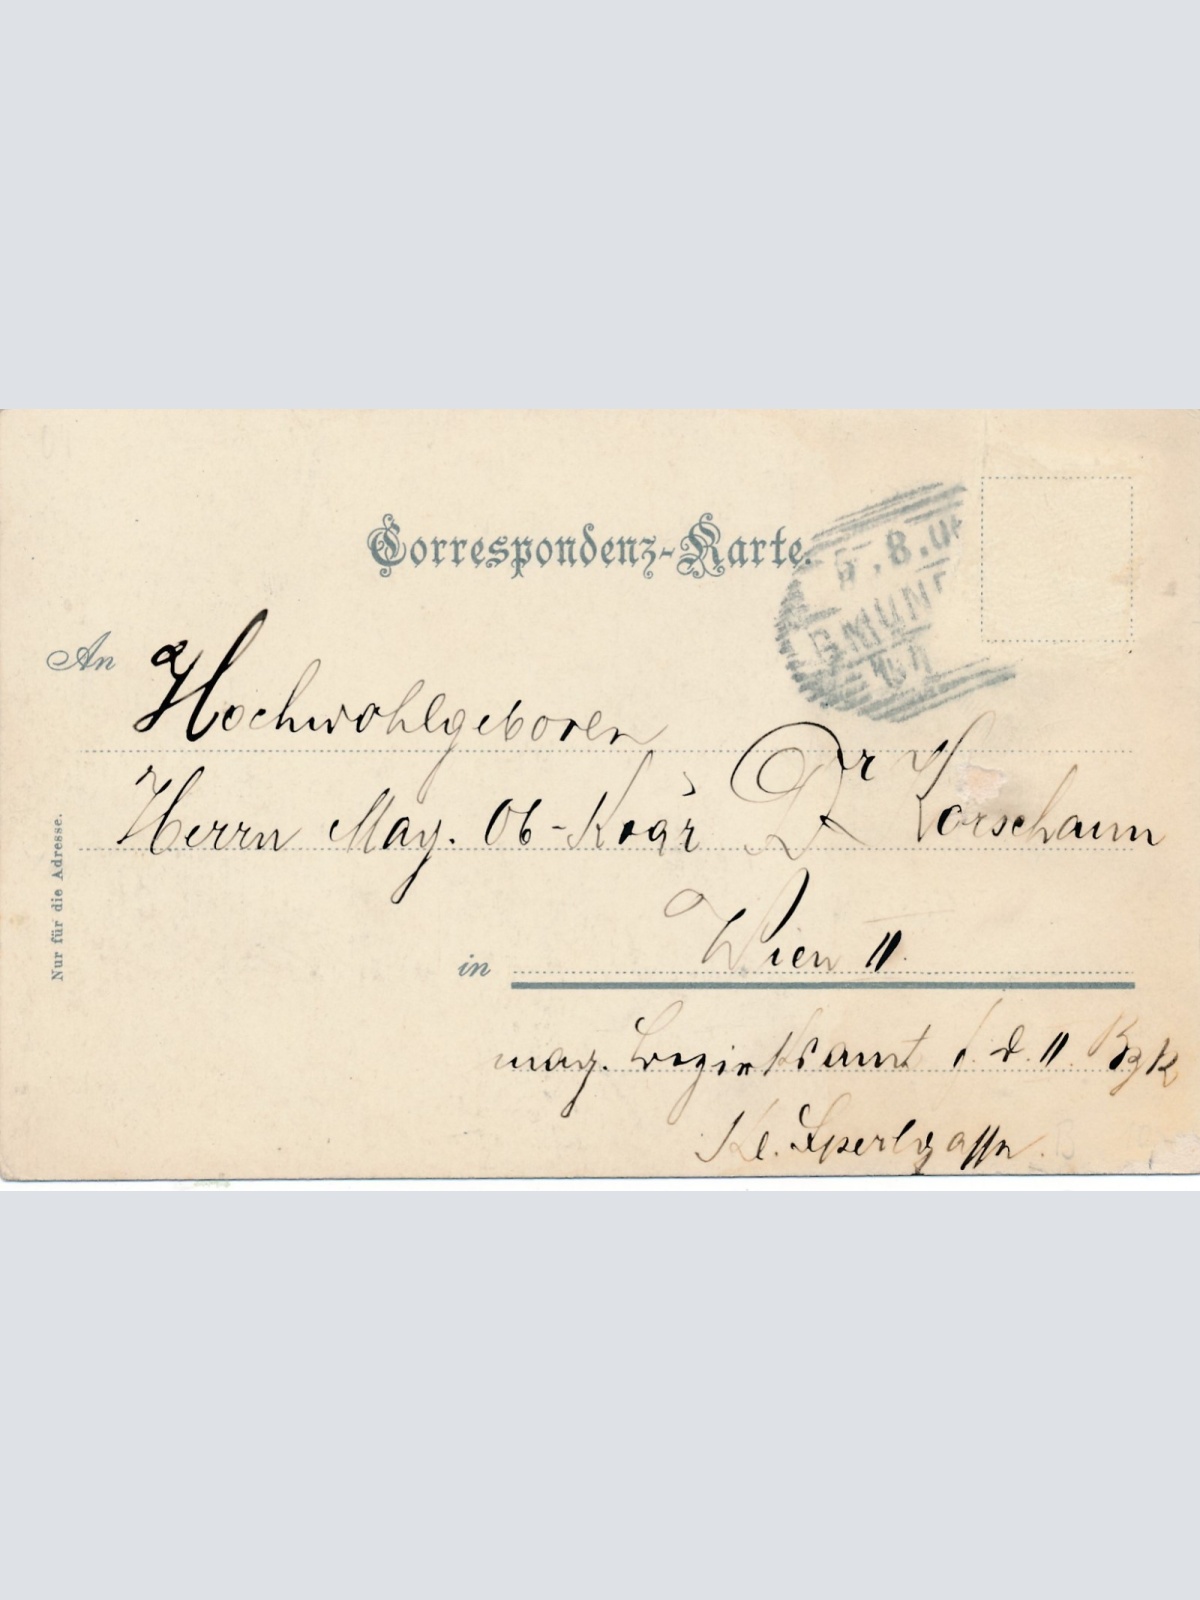 Correspondenz-Karte.
5.8.0
GMUND
An Hochwohlgeboren
Herrn Mag. Ob-Koär Dr Vorschann
in Wien II.
mag. Bezirksamt f. d. II Bzk
Kl. Sperlgasse.
Nur für die Adresse.